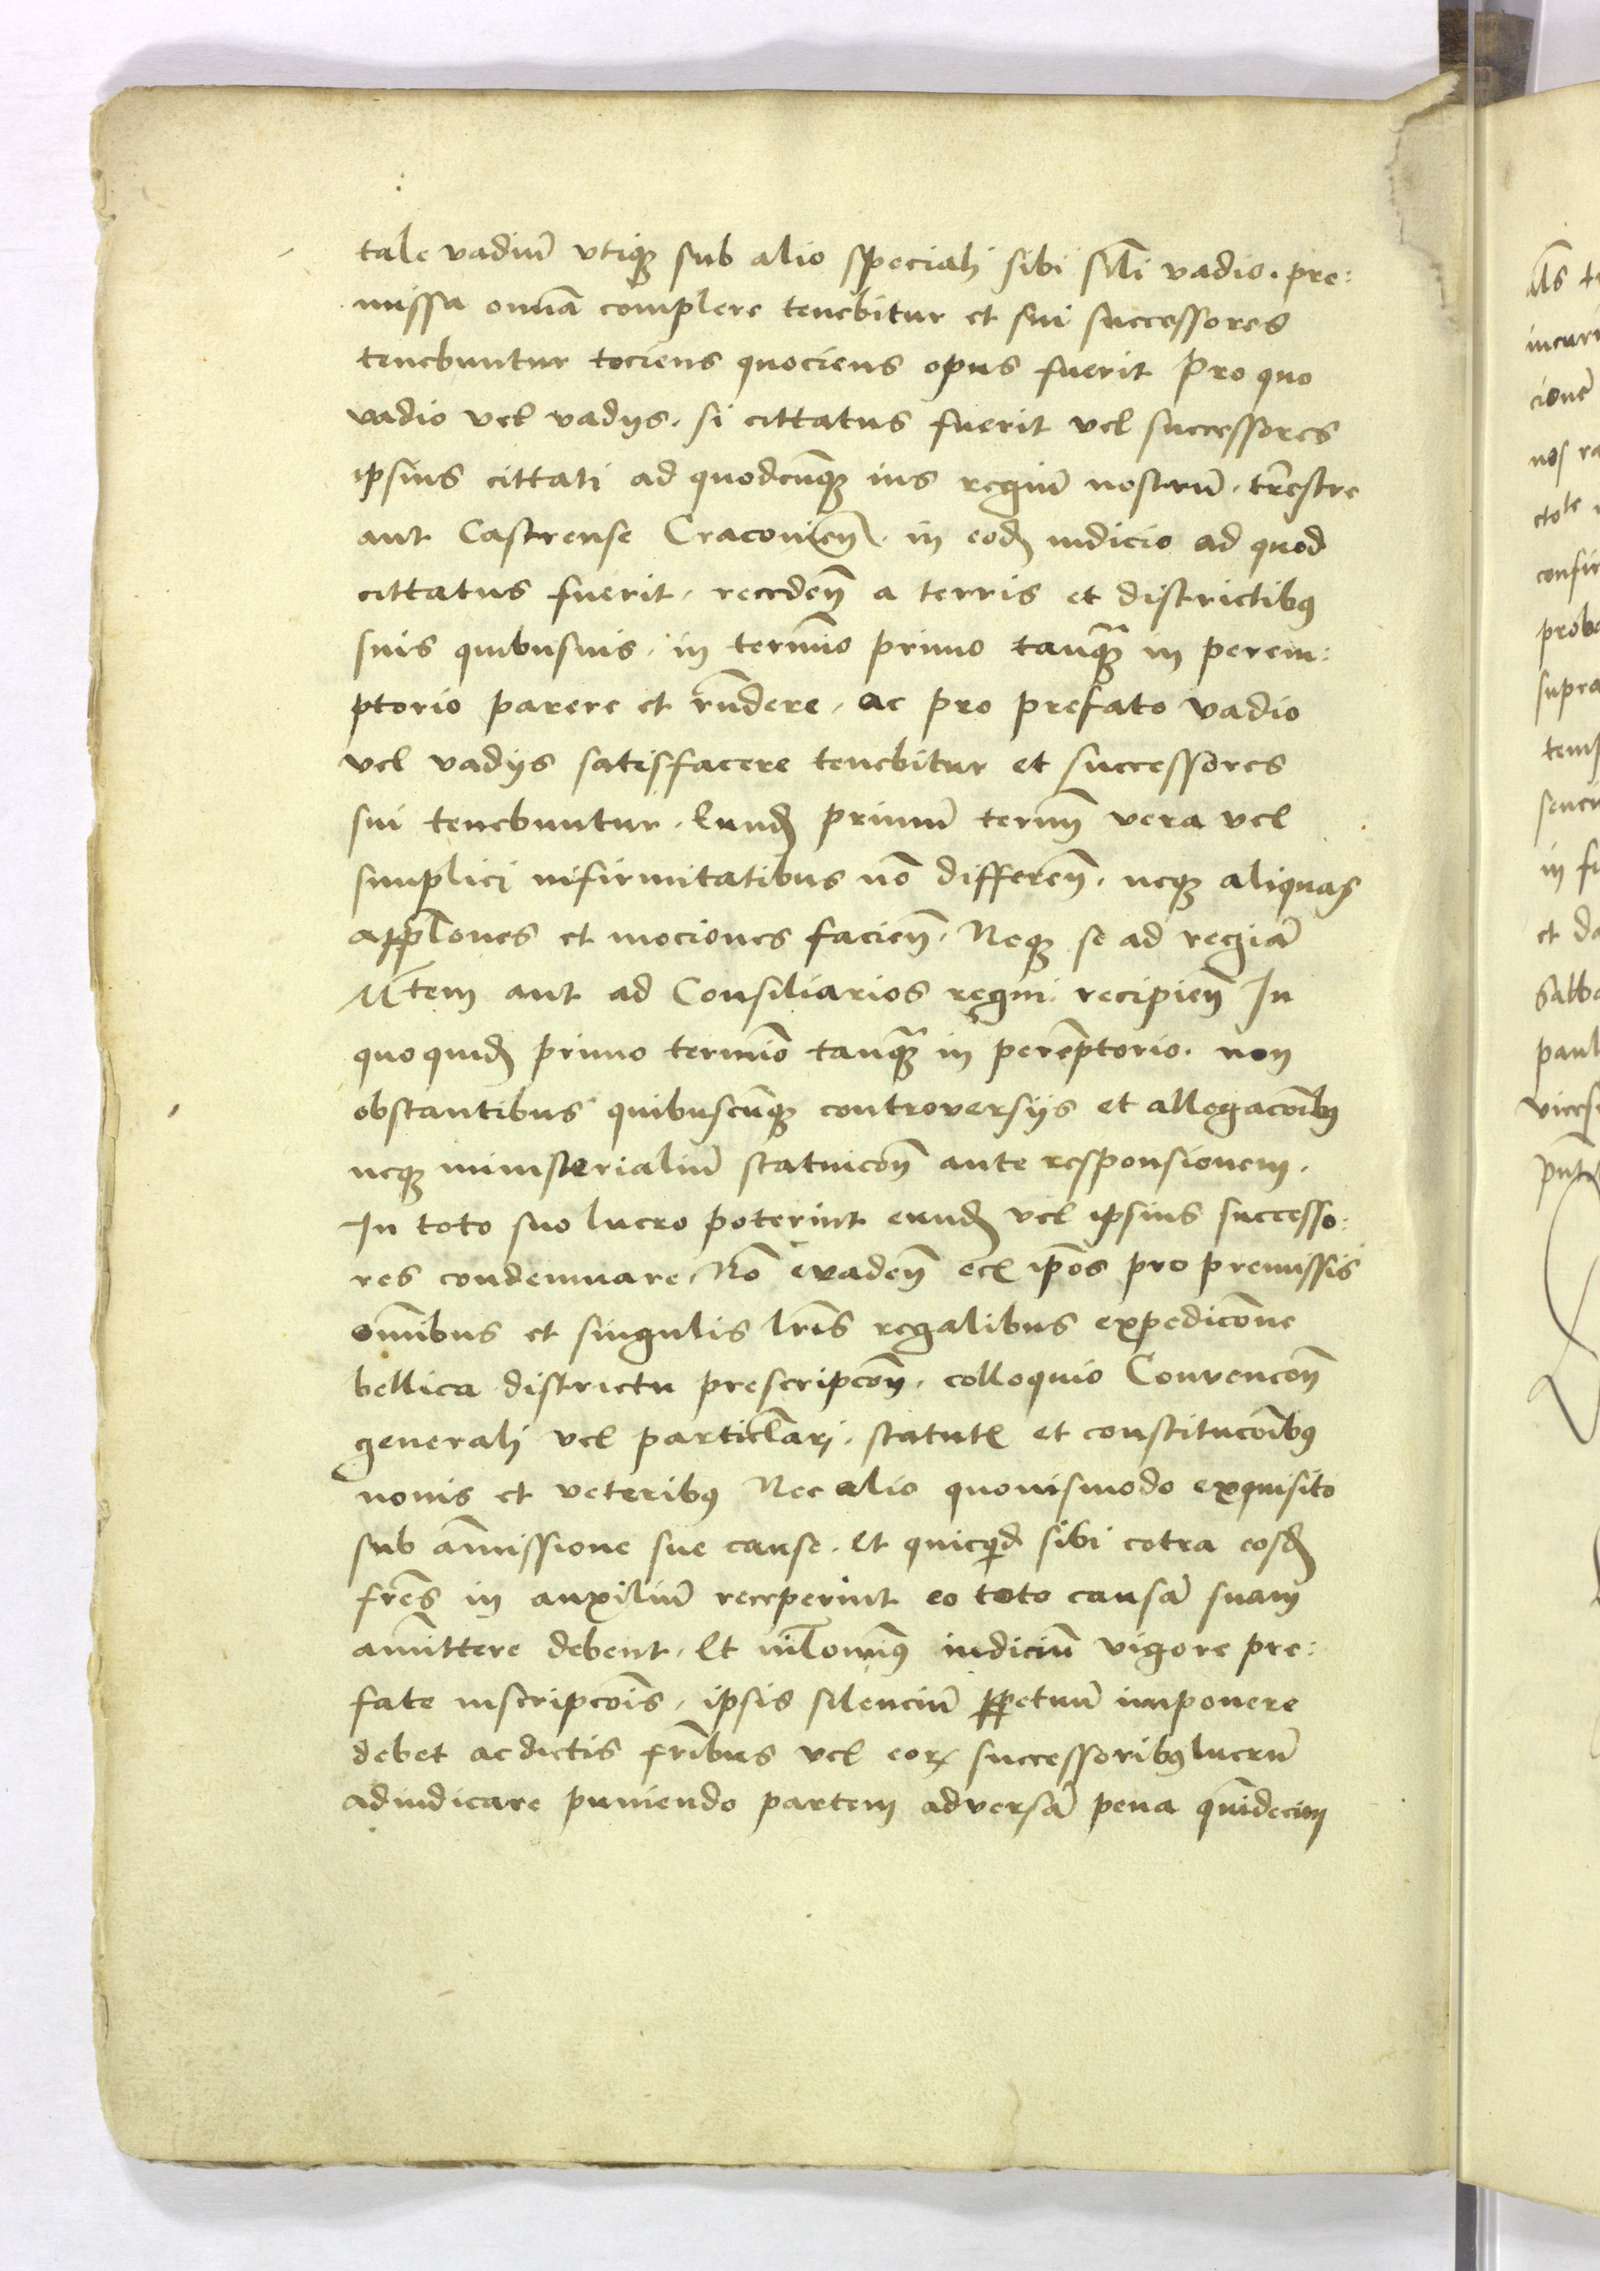 tale vadiū vtiqꝫ sub alio speciali sibi sīli vadio. pre:
missa omnīa complere tenebitur et sui successores
tenebuntur tociens quociens opus fuerit Pro quo
vadio vel vadijs. si cittatus fuerit vel successores
ipsius cittati ad quodcūqꝫ ius regiū nostrū. trēstre
aut Castrense Cracouien̄. in eodꝫ iudicio ad quod
cittatus fuerit. recedeñ a terris et districtibꝰ
suis quibusuis. in termīo primo tanqꝫ in perem:
ptorio parere et rn̄dere. ac pro prefato vadio
vel vadijs satisfacere tenebitur et successores
sui tenebuntur. Eundꝫ primum termīn vera vel
simplici infirmitatibus nō differeñ. neqꝫ aliquas
appl̄ones et mociones facieñ. Neqꝫ se ad regiā
Mtēm aut ad Consiliarios regni recipieñ In
quoquidꝫ primo termīo tanqꝫ in perēptorio. non
obstantibus quibuscūqꝫ controversijs et allegacōibꝰ
neqꝫ ministerialiū statuicōn ante responsionem.
In toto suo lucro poterint eundꝫ vel ipsius successo:
res condemnare. Nō evadeñ ecꝫ ip̄os pro premissis
om̄ibus et singulis lrīs regalibus expedicōne
bellica districtu prescripcōn. colloquio Convencōn
generali vel particl̄ari. statutꝭ et constitucōibꝰ
nouis et veteribꝰ Nec alio quouismodo exquisito
sub ām̄issione sue cause. Et quicq̄d sibi cōtra eosdꝫ
frēs in auxiliū receperint eo toto causā suam
amīttere debent. Et nīlomīꝰ iudiciū vigore pre:
fate inscripcōis. ipsis silenciū ꝑpetuū imponere
debet ac dictis frībus vel eoꝝ successoribꝰ lucrū
adiudicare puniendo partem adversā pena qūidecim